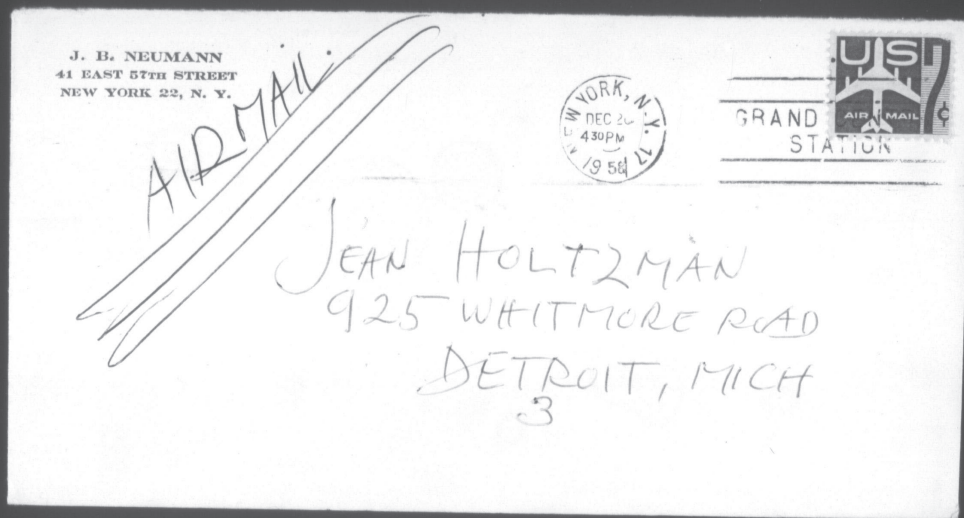 J. B. NEUMANN
41 EAST 57TH STREET
NEW YORK 22, N. Y.
AIR MAIL.
NEW YORK, N.Y. 17
DEC 26
430PM
1958
GRAND
STATION
US
7¢
AIR MAIL
JEAN HOLTZMAN
925 WHITMORE ROAD
DETROIT, MICH
3